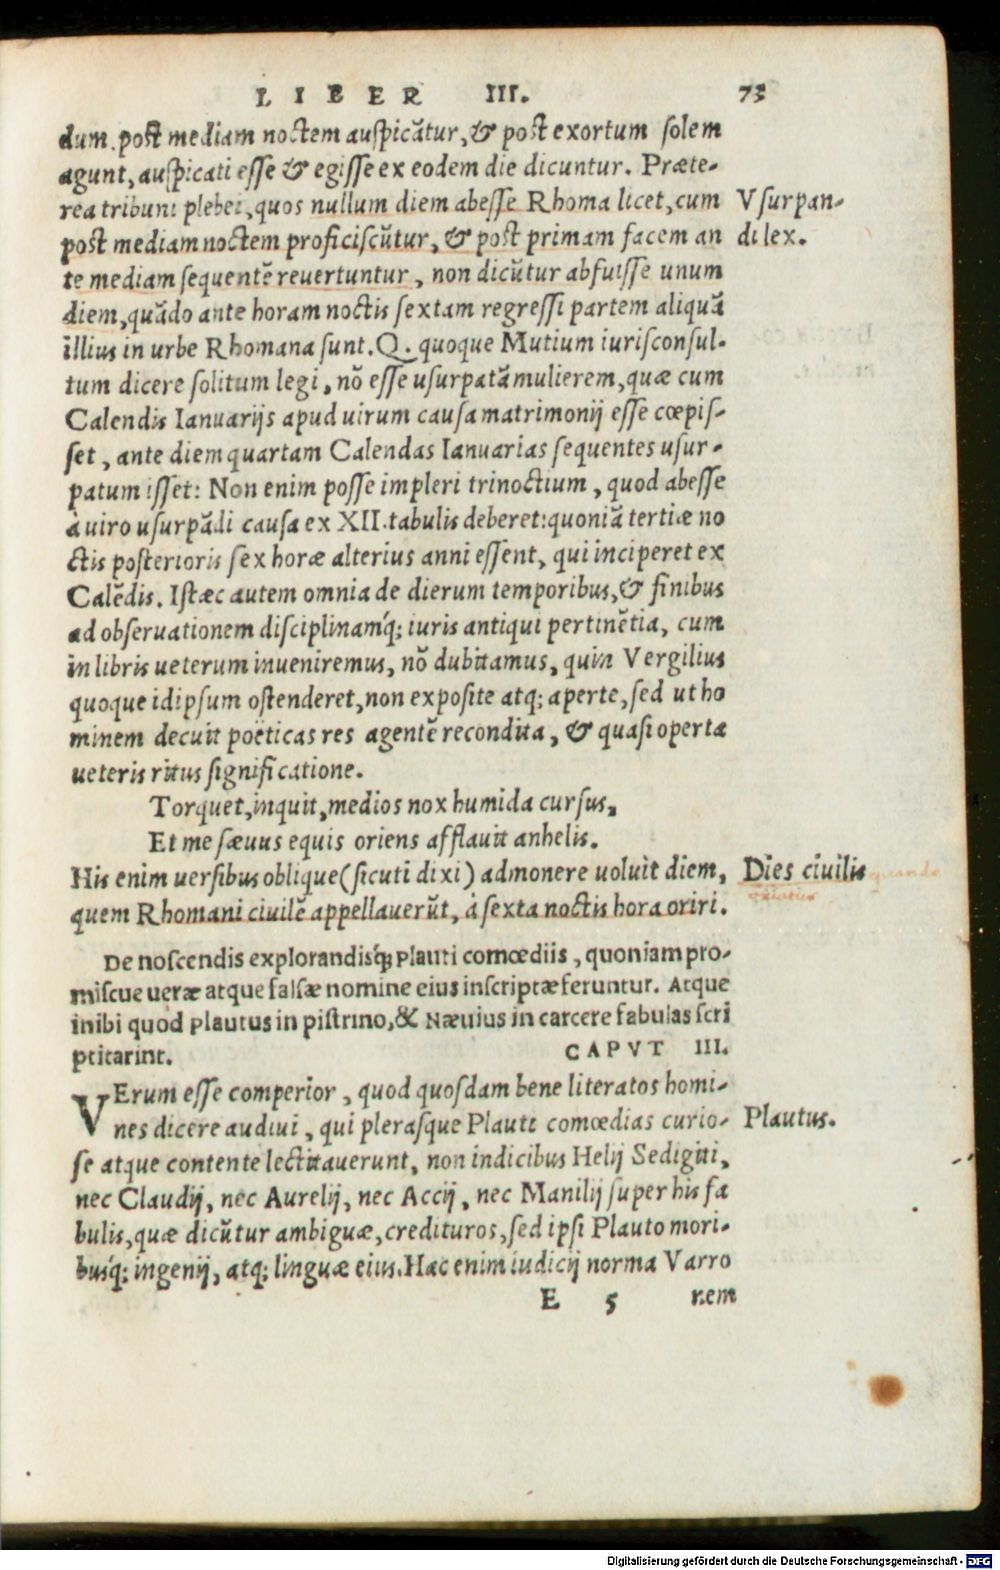 LIBER III. 73
dum. post mediam noctem auspicãtur, & post exortum solem
agunt, auspicati esse & egisse ex eodem die dicuntur. Præte-
rea tribuni plebei, quos nullum diem abesse Rhoma licet, cum
Vsurpan-
post mediam noctem proficiscũtur, & post primam facem an
di lex.
te mediam sequentẽ reuertuntur, non dicũtur abfuisse unum
diem, quãdo ante horam noctis sextam regressi partem aliquã
illius in urbe Rhomana sunt. Q. quoque Mutium iurisconsul-
tum dicere solitum legi, nõ esse usurpatã mulierem, quæ cum
Calendis Ianuarijs apud uirum causa matrimonij esse cœpis-
set, ante diem quartam Calendas Ianuarias sequentes usur-
patum isset: Non enim posse impleri trinoctium, quod abesse
à uiro usurpãdi causa ex XII. tabulis deberet: quoniã tertiæ no
ctis posterioris sex horæ alterius anni essent, qui inciperet ex
Calẽdis. Istæc autem omnia de dierum temporibus, & finibus
ad obseruationem disciplinamq́; iuris antiqui pertinẽtia, cum
in libris ueterum inueniremus, nõ dubitamus, quin Vergilius
quoque id ipsum ostenderet, non exposite atq; aperte, sed ut ho
minem decuit poëticas res agentẽ recondita, & quasi operta
ueteris ritus significatione.
Torquet, inquit, medios nox humida cursus,
Et me sæuus equis oriens afflauit anhelis.
His enim uersibus oblique (sicuti dixi) admonere uoluit diem,
Dies ciuilis quando
oriatur
quem Rhomani ciuilẽ appellauerũt, à sexta noctis hora oriri.
De noscendis explorandisq́; Plauti comœdiis, quoniam pro-
miscue ueræ atque falsæ nomine eius inscriptæ feruntur. Atque
inibi quod Plautus in pistrino, & Næuius in carcere fabulas scri
ptitarint. CAPVT III.
VErum esse comperior, quod quosdam bene literatos homi-
nes dicere audiui, qui plerasque Plauti comœdias curio-
Plautus.
se atque contente lectitauerunt, non indicibus Helij Sedigiti,
nec Claudij, nec Aurelij, nec Accij, nec Manilij super his fa
bulis, quæ dicũtur ambiguæ, credituros, sed ipsi Plauto mori-
busq́; ingenij, atq; linguæ eius. Hac enim iudicij norma Varro
E 5 nem
Digitalisierung gefördert durch die Deutsche Forschungsgemeinschaft - DFG